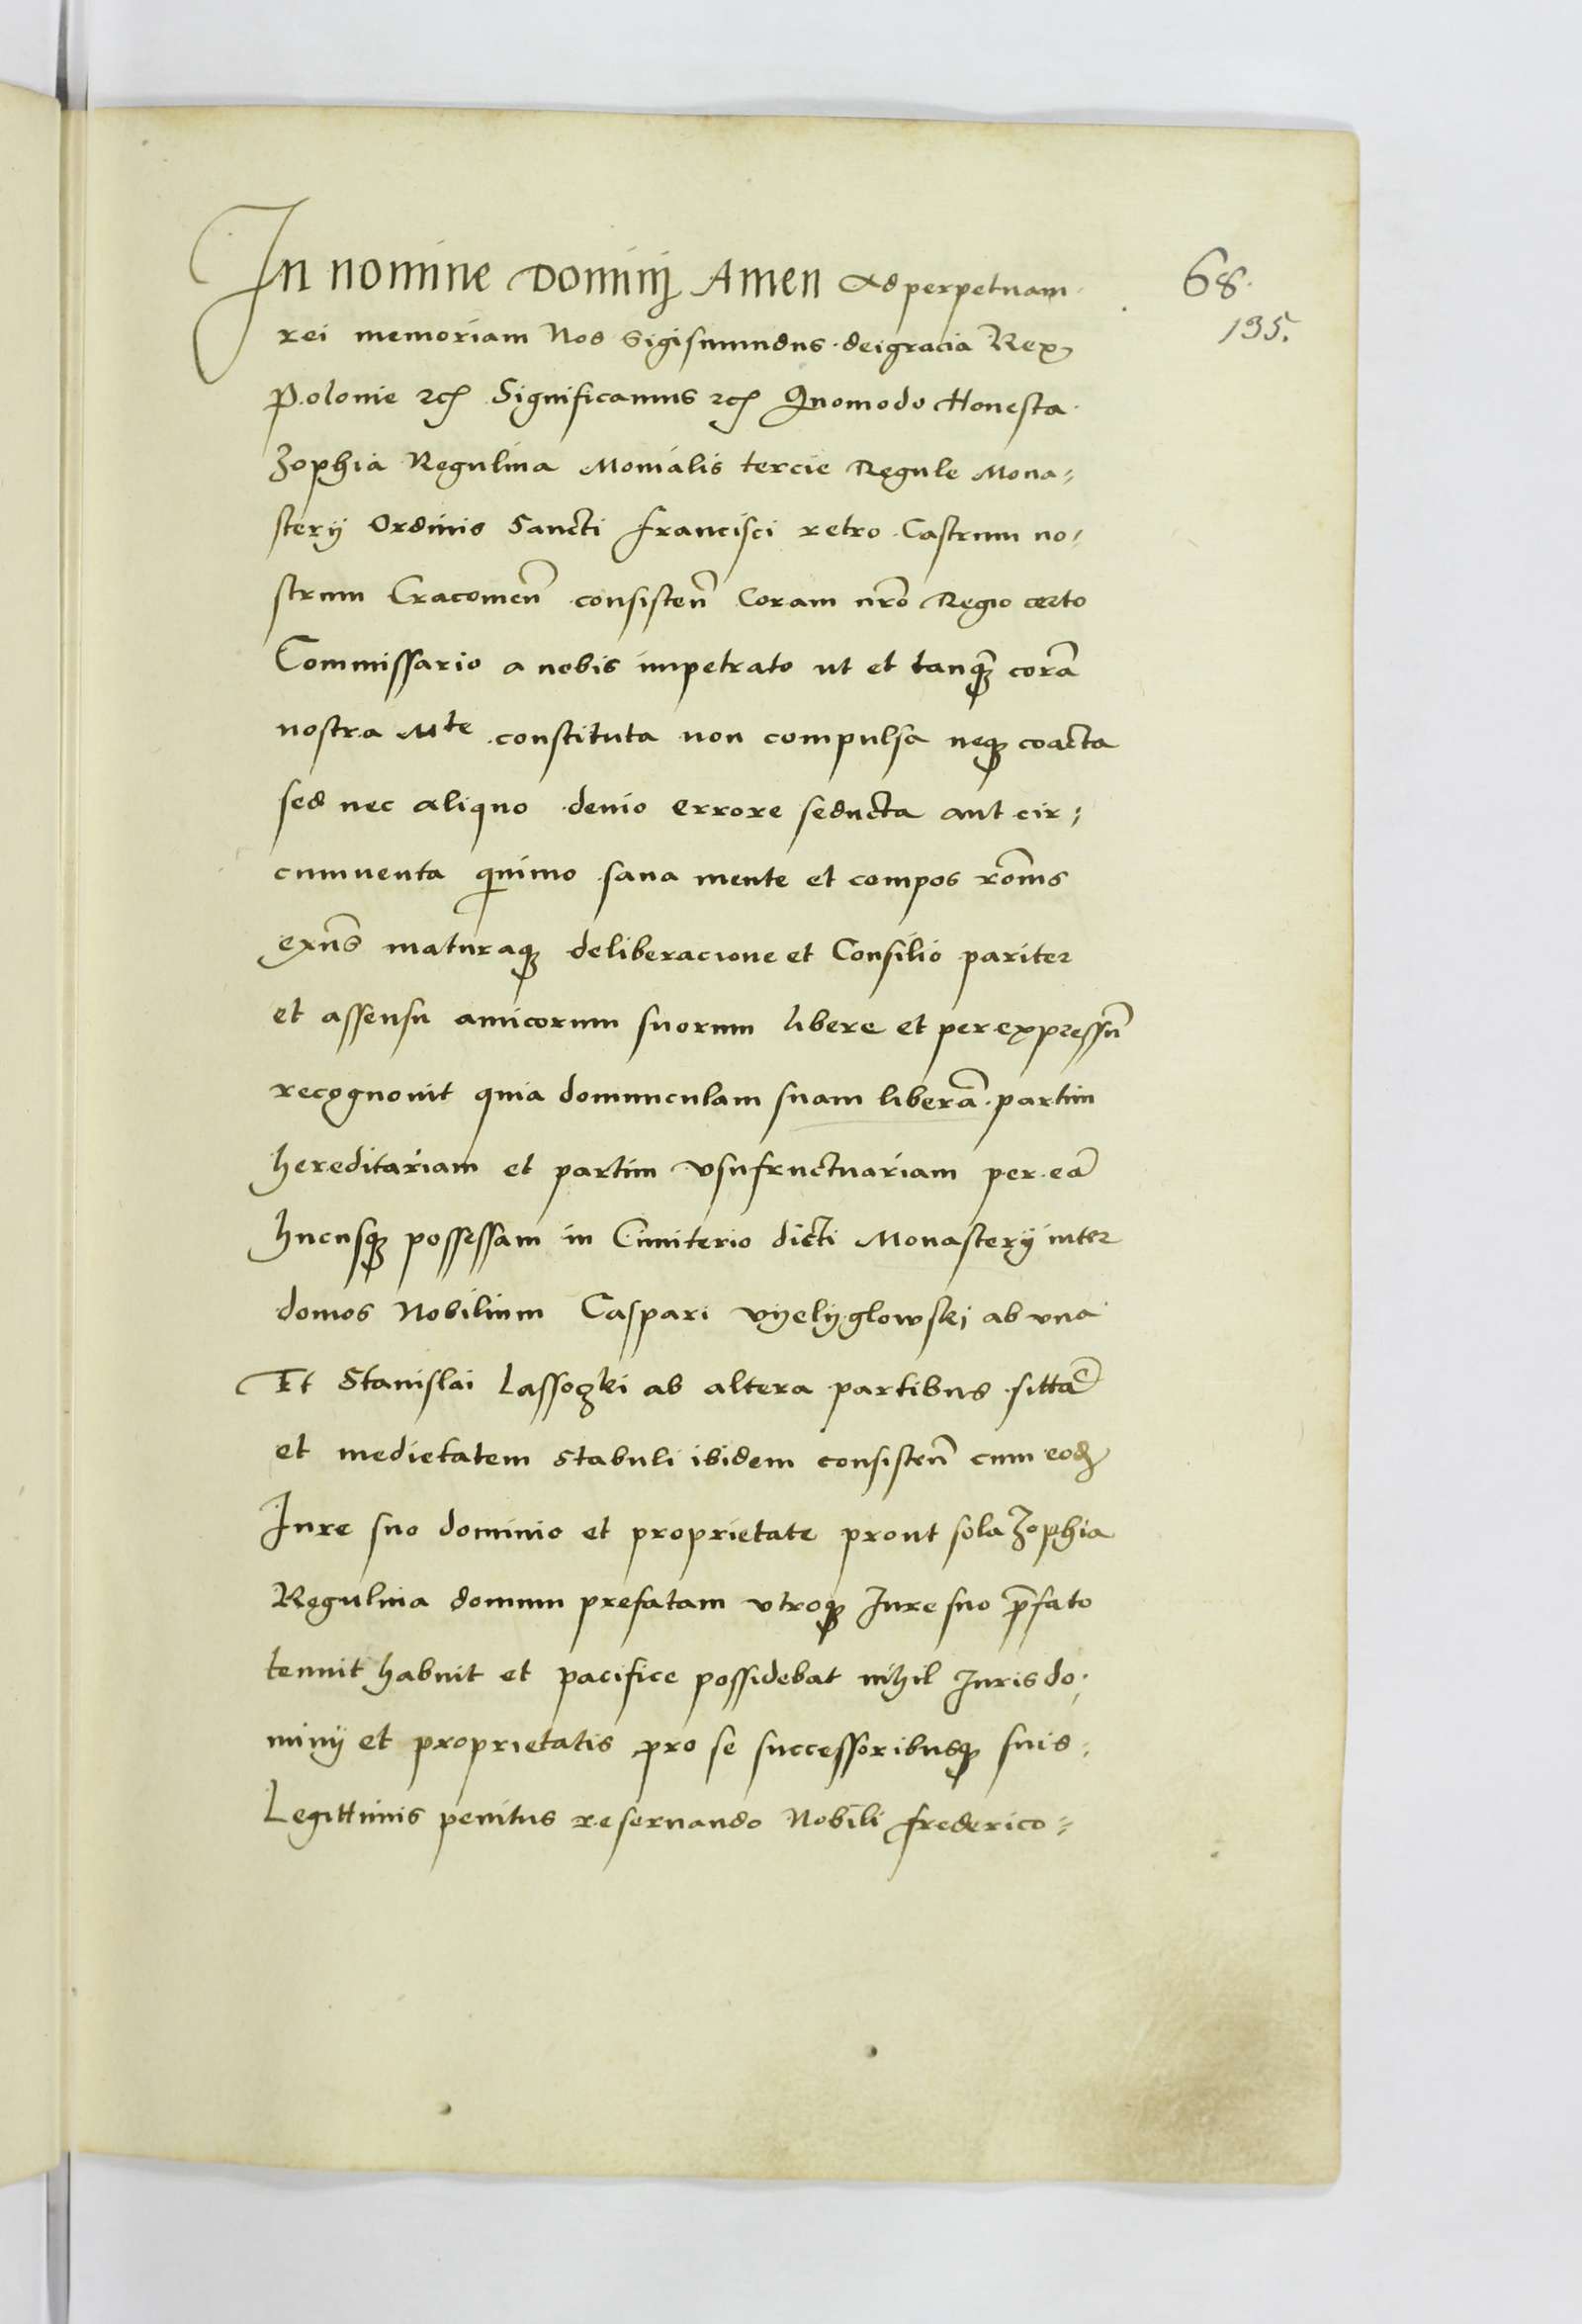 In nomine Dominj Amen Ad perpetuam
68.
rei memoriam Nos Sigismundus dei gracia Rex
195.
Polonie ꝛcꝭ Significamus ꝛcꝭ Quomodo Honesta
Zophia Regulina Monialis tercie Regule Mona⸗
sterij Ordinis Sancti francisci retro Castrum no⸗
strum Cracouien̄ consisten̄ Coram nr̄o Regio certo
Commissario a nobis impetrato ut et tanqꝫ corā
nostra Mte constituta non compulsa neqꝫ coacta
sed nec aliquo deuio errore seducta aut cir⸗
cumuenta qinimo sana mente et compos rōnis
exn̄s maturaqꝫ deliberacione et Consilio pariter
et assensu amicorum suorum libere et per expressū
recognouit quia domunculam suam liberā partim
hereditariam et partim vsufructuariam per eā
hucusqꝫ possessam in Cimiterio dicti Monasterij inter
domos Nobilium Caspari vyelyglowskj ab vna
Et Stanislai Lassoczki ab altera partibus sittā
et medietatem stabuli ibidem consisten̄ cum eodꝫ
Iure suo dominio et proprietate prout sola Zophia
Regulina domum prefatam vtroqꝫ Iure suo p̄fato
tenuit habuit et pacifice possidebat nihil Iuris do⸗
minij et proprietatis pro se successoribusqꝫ suis
Legittimis penitus reseruando Nobili frederico⸗